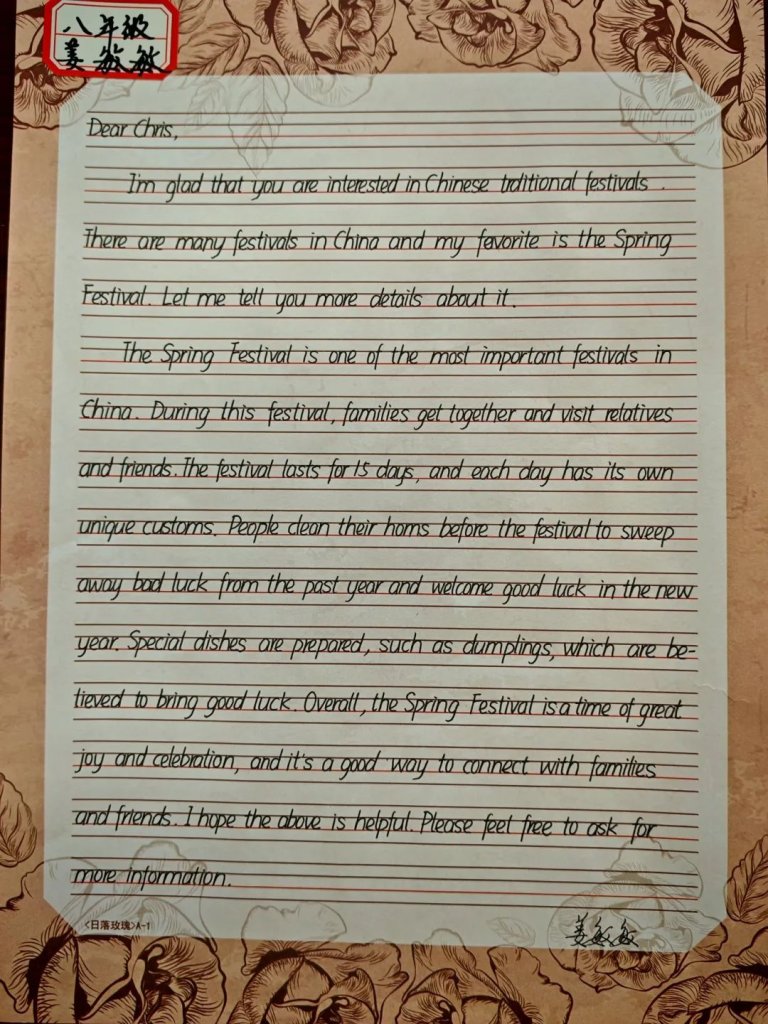 八年级
姜敏敏
Dear Chris,
I'm glad that you are interested in Chinese trditional festivals.
There are many festivals in China and my favorite is the Spring
Festival. Let me tell you more details about it.
The Spring Festival is one of the most important festivals in
China. During this festival, families get together and visit relatives
and friends. The festival lasts for 15 days, and each day has its own
unique customs. People clean their homs before the festival to sweep
away bad luck from the past year and welcome good luck in the new
year. Special dishes are prepared, such as dumplings, which are be-
lieved to bring good luck. Overall, the Spring Festival is a time of great
joy and celebration, and it's a good way to connect with families
and friends. I hope the above is helpful. Please feel free to ask for
more information.
<日落玫瑰>A-1
姜敏敏